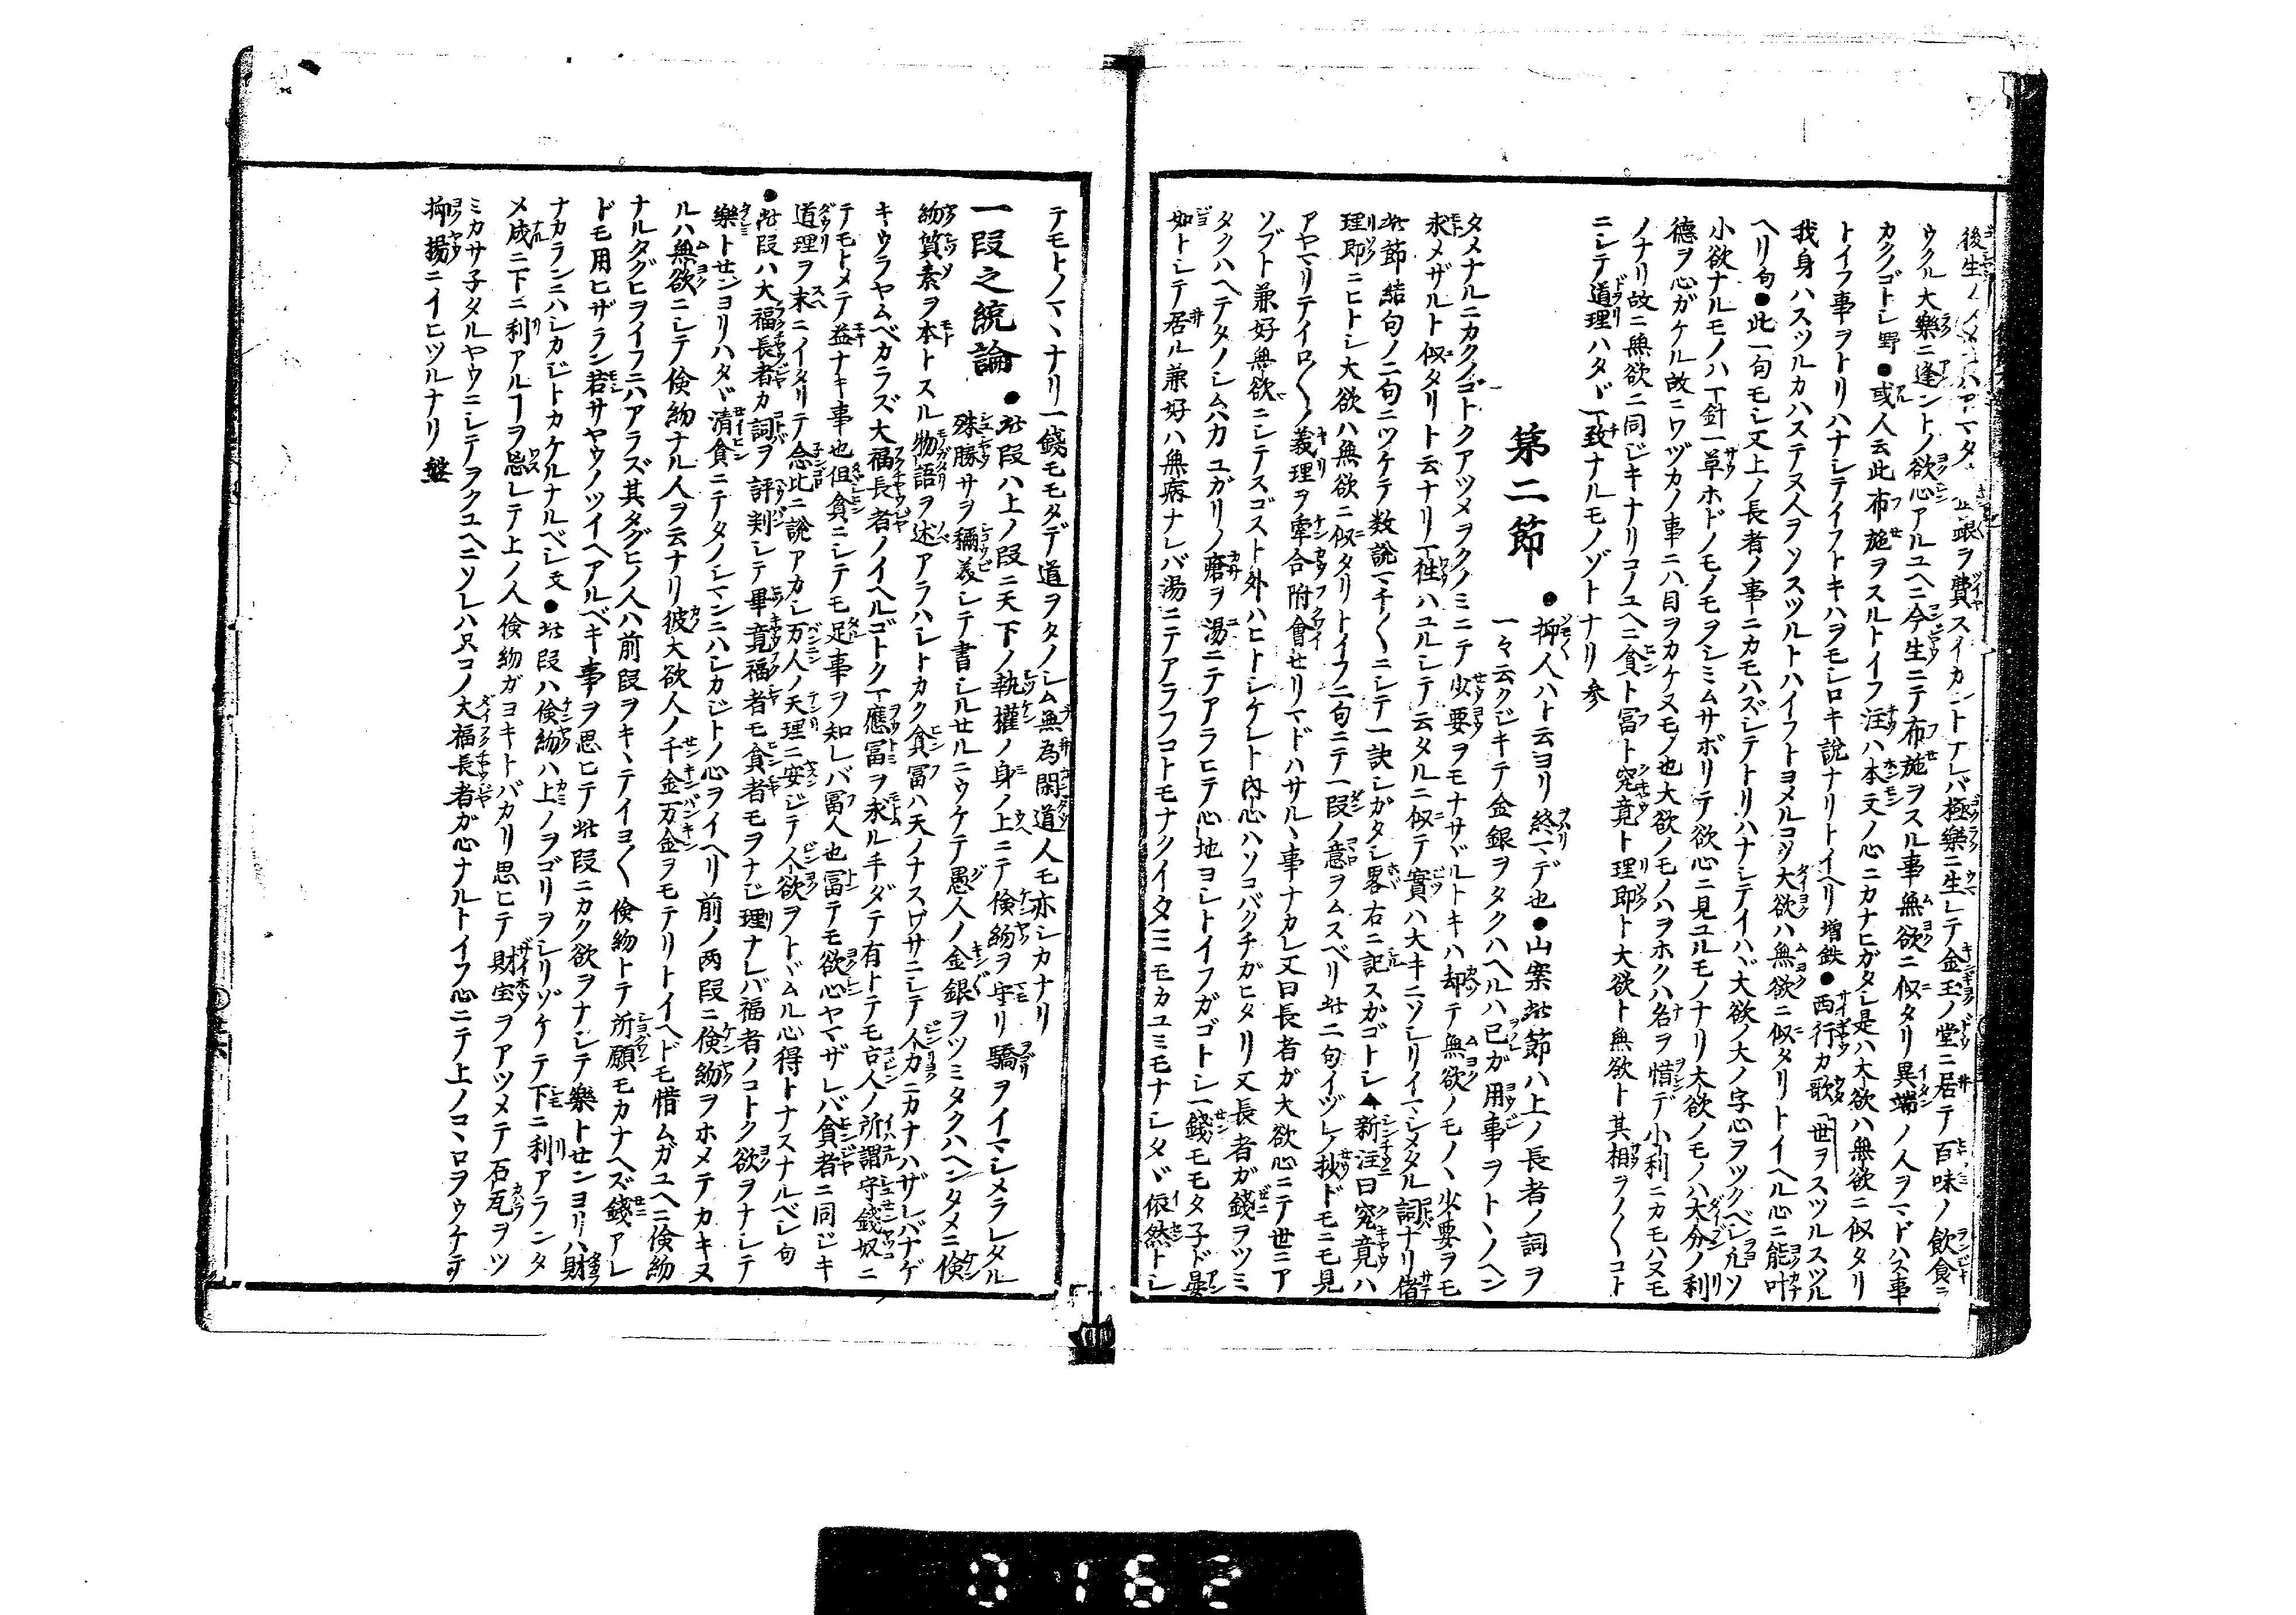 後生ノ
ウクル大樂ニ逢ントノ欲心アルユヘニ今生ニテ布施ヲスル事無欲ニ似タリ異端ノ人ヲマドハス事
カクノゴトシ野●或人云此布施ヲスルトイフ注ハ本文ノ心ニカナヒガタシ是ハ大欲ハ無欲ニ似タリ
トイフ事ヲトリハナシテイフトキハヲモシロキ説ナリトイヘリ増鉄●西行カ歌「世ヲスツルスツル
我身ハスツルカハステヌ人ヲソスツルトハイフトヨメルコソ大欲ハ無欲ニ似タリトイヘル心ニ能叶
ヘリ句●此一句モシ又上ノ長者ノ事ニカモハズシテトリハナシテイハヾ大欲ノ大ノ字心ヲツクベシ凡ソ
小欲ナルモノハ一針一草ホドノモノモヲシミムサボリテ欲心ニ見ユルモノナリ大欲ノモノハ大分ノ利
德ヲ心ガケル故ニワヅカノ事ニハ目ヲカケヌモノ也大欲ノモノハヲホクハ名ヲ惜デ小利ニカモハヌモ
ノナリ故ニ無欲ニ同ジキナリコノユヘニ貪ト冨ト究竟ト理即ト大欲ト無欲ト其相ヲノ〱コト
ニシテ道理ハタヾ一致ナルモノゾトナリ参
第二節
●抑人ハト云ヨリ終マデ也●山案此節ハ上ノ長者ノ詞ヲ
一々云クジキテ金銀ヲタクハヘルハ已ガ用事ヲトヽノヘン
タメナルニカクノゴトクアツメヲクノミニテ少要ヲモナサヾルトキハ却テ無欲ノモノヽ少要ヲモ
求メザルト似タリト云ナリ一往ハユルシテ云タルニ似テ實ハ大キニソシリイマシメタル詞ナリ偖
此節結句ノ二句ニツケテ数説マチ〱ニシテ一訣シガタシ畧右ニ記スガゴトシ▲新注曰究竟ハ
理即ニヒトシ大欲ハ無欲ニ似タリトイフ二句ニテ一段ノ意ヲムスベリ此二句イヅレノ抄ドモニモ見
アヤマリテイロ〱ノ義理ヲ牽合附會セリマドハサルヽ事ナカレ又曰長者ガ大欲心ニテ世ニア
ソブト兼好無欲ニシテスゴスト外ハヒトシケレト内心ハソコバクチガヒタリ又長者ガ錢ヲツミ
タクハヘテタノシムハカユガリノ瘡ヲ湯ニテアラヒテ心地ヨシトイフガゴトシ一錢モモタ子ド晏
如トシテ居ル兼好ハ無病ナレバ湯ニテアラフコトモナクイタミモカユミモナシタヾ依然トシ
テモトノマヽナリ一錢モモタデ道ヲタノシム無為閑道人モ亦シカナリ
一段之統論
●此段ハ上ノ段ニ天下ノ執權ノ身ノ上ニテ倹約ヲ守リ驕ヲイマシメラレタル
殊勝サヲ稱美シテ書シルセルニウケテ愚人ノ金銀ヲツミタクハヘンタメニ倹
約質素ヲ本トスル物語ヲ述アラハシトカク貪冨ハ天ノナスワサニシテ人カニカナハザレバナゲ
キウラヤムベカラズ大福長者ノイヘルゴトク一應冨ヲ求ル手ダテ有トテモ古人ノ所謂守錢奴ニ
テモトメテ益ナキ事也但貪ニシテモ足事ヲ知レバ冨人也冨テモ欲心ヤマザレバ貪者ニ同ジキ
道理ヲ末ニイタリテ念比ニ說アカシ万人ノ天理ニ安ジテ人欲ヲトヾムル心得トナスナルベシ句
●此段ハ大福長者カ詞ヲ評判シテ畢竟福者モ貪者モヲナジ理ナレバ福者ノコトク欲ヲナシテ
樂トセンヨリハタヾ清貪ニテタノシマンニハシカジトノ心ヲイヘリ前ノ两段ニ倹約ヲホメテカキヌ
ルハ無欲ニシテ倹約ナル人ヲ云ナリ彼大欲人ノ千金万金ヲモテリトイヘドモ惜ムガユヘニ倹約
ナルタグヒヲイフニハアラズ其タグヒノ人ハ前段ヲキヽテイヨ〱倹約トテ所願モカナヘズ錢アレ
ドモ用ヒザラン若サヤウノツイヘアルベキ事ヲ思ヒテ此段ニカク欲ヲナシテ樂トセンヨリハ財
ナカランニハシカジトカケルナルベシ文●此段ハ倹約ハ上ノヲゴリヲシリゾケテ下ニ利アランタ
メ成ニ下ニ利アルヿヲ忘レテ上ノ人倹約ガヨキトバカリ思ヒテ財宝ヲアツメテ石瓦ヲツ
ミカサ子タルヤウニシテヲクユヘニソレハ只コノ大福長者ガ心ナルトイフ心ニテ上ノコヽロヲウケテ
抑揚ニイヒツルナリ盤